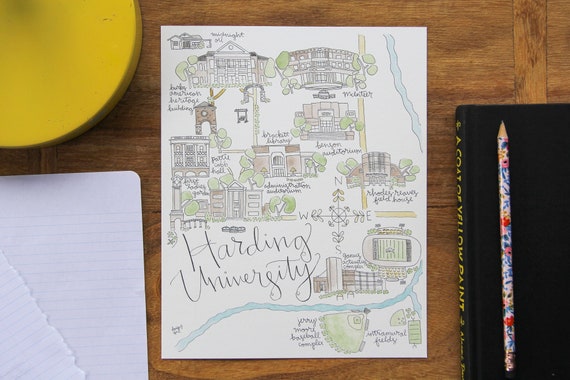 midnight
oil
burks
american
heritage
building
mcinteer
brackett
library
benson
auditorium
pattie
cobb
hall
administration
auditorium
rhodes reaves
field house
N
W
E
S
Harding
University
ganus
athletic
complex
jerry
moore
baseball
complex
intramural
fields
A CAN OF YELLOW PAINT